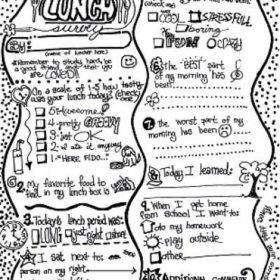 LUNCH
survey
By:
(name of luncher here)
*Remember to study hard, be
a good friend, and that you
are LOVED!!
On a scale of 1-5 how tasty
was your lunch today? (check
one)
5 = awesome!
4 = pretty GROOVY
3 = just OK
2 = I ate it anyway
1 = "HERE FIDO..."
2. My favorite food to
find in my lunch box is
3. Today's lunch period was:
LONG just right short
4. I sat next to:
person on my right
been
COOL STRESSFUL
boring
FUN CRAZY
6. the "BEST" part
of my morning has
been
7. the worst part of my
morning has been
8. Today I learned:
9. When I get home
from school I want to:
do my homework
play outside
other
10. Additional comments